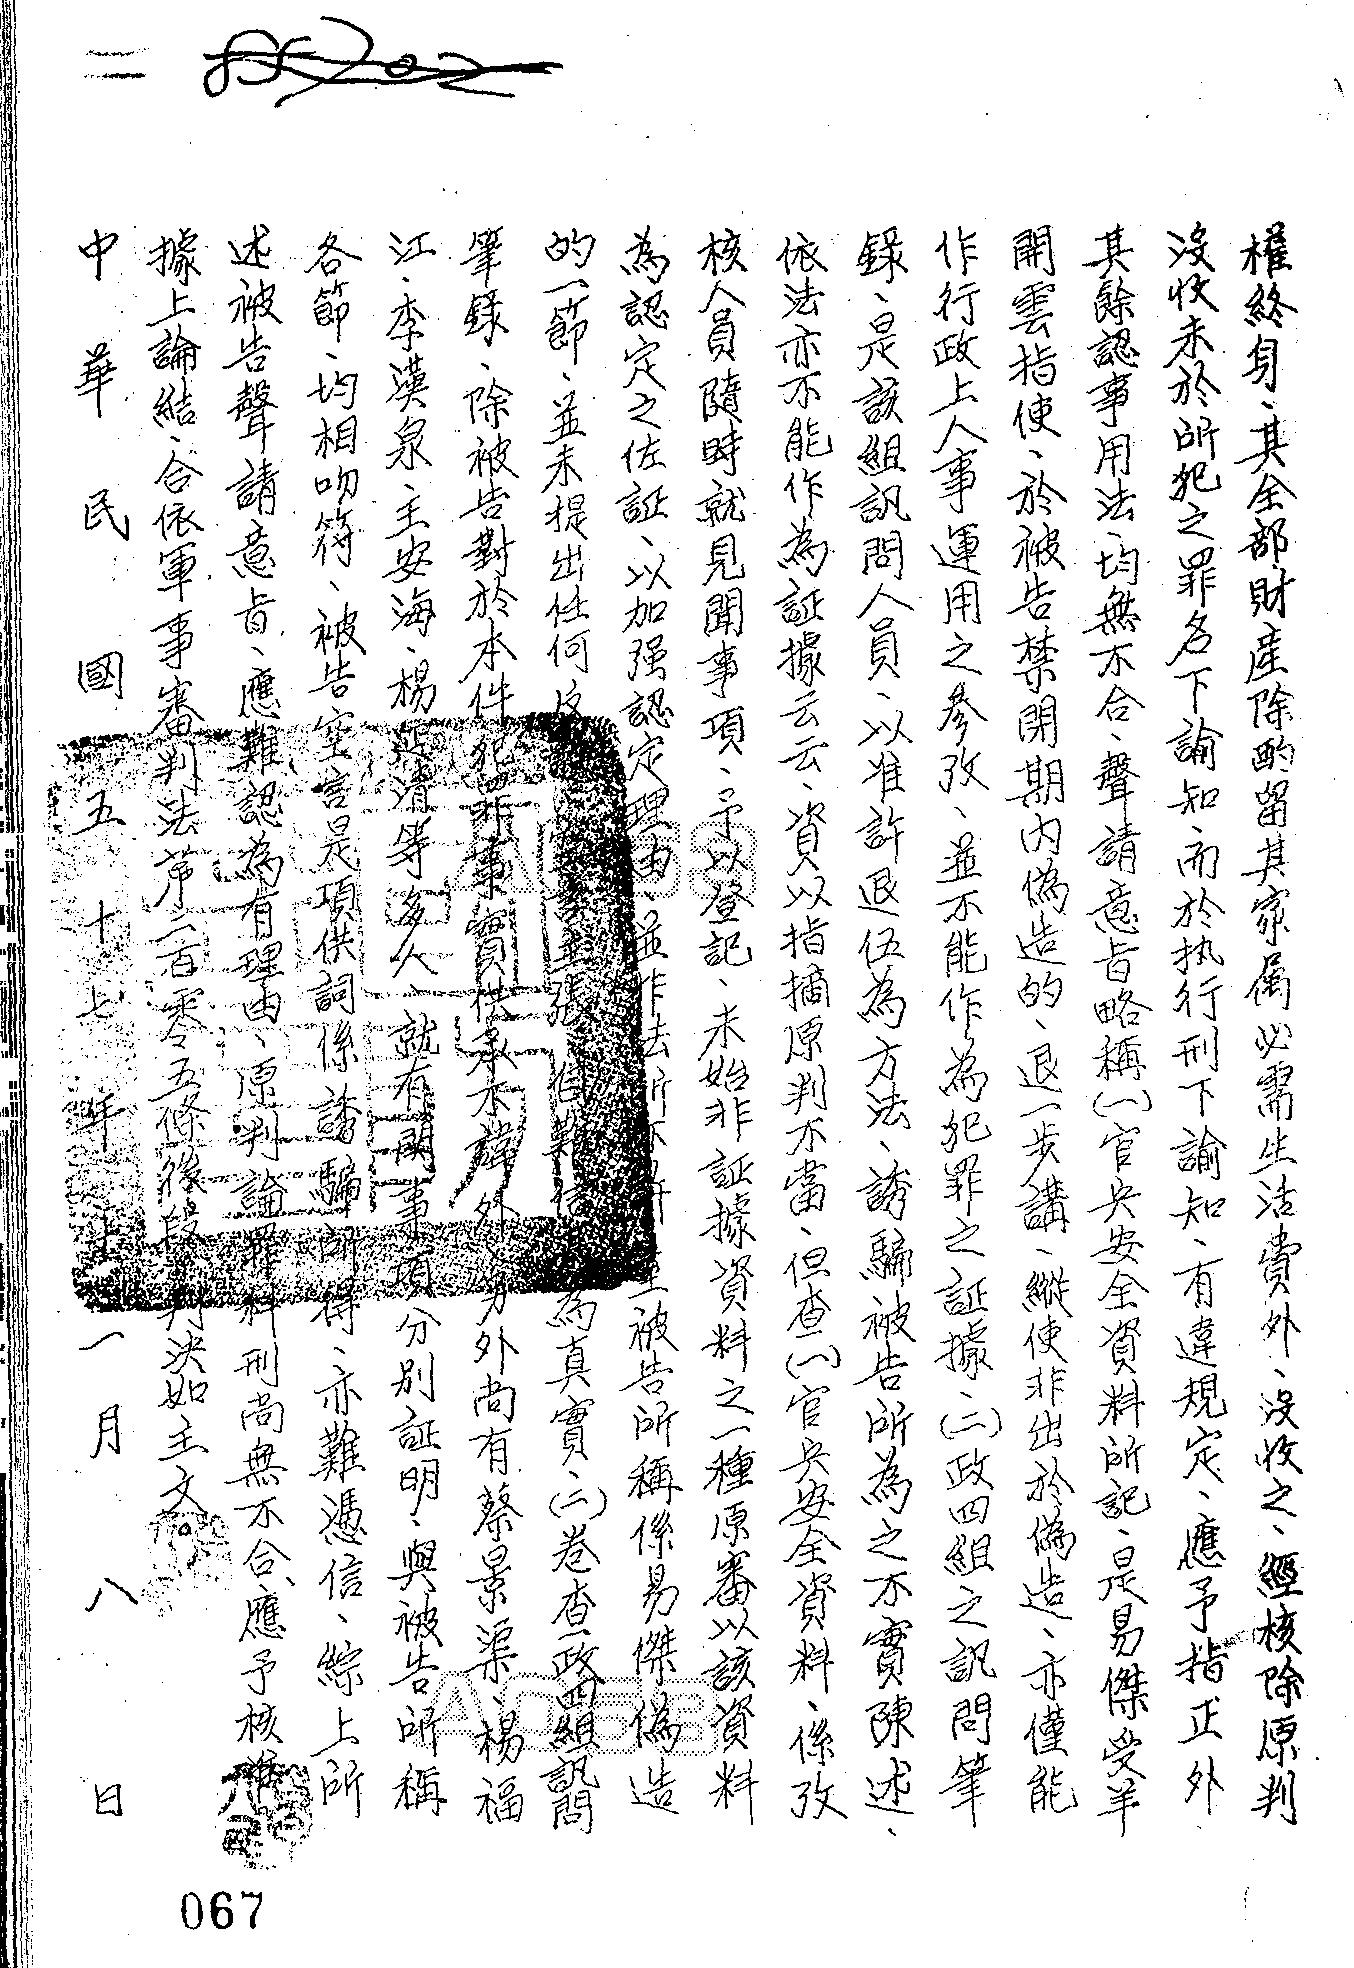 二
權終身、其全部財產除酌留其家属必需生活費外、沒收之、經核除原判
沒收未於所犯之罪名下諭知、而於执行刑下諭知、有違規定、應予指正外、
其餘認事用法、均無不合、聲請意旨略稱(一)官兵安全資料所記、是易傑受羊
開雲指使、於被告禁閉期內偽造的、退一步講、縱使非出於偽造、亦僅能
作行政上人事運用之參攷、並不能作為犯罪之証據、(二)政四組之訊問筆
錄、是該組訊問人員、以准許退伍為方法、誘騙被告所為之不實陳述、
依法亦不能作為証據云云、資以指摘原判不當、但查(一)官兵安全資料、係攷
核人員隨時就見聞事項、予以登記、未始非証據資料之一種原審以該資料
為認定之佐証、以加强認定理由、並非法所不許、至被告所稱係易傑偽造
的一節、並未提出任何 張自難信為真實(二)卷查政四組訊問
筆錄、除被告對於本件犯罪事實供承不諱外、另外尚有蔡景渠、楊福
江、李漢泉、王安海、楊 清等多人、就有關事項分別証明、與被告所稱
各節、均相吻符、被告空言是項供詞係誘騙所得、亦難憑信、綜上所
述被告聲請意旨、應難認為有理由、原判論罪科刑尚無不合、應予核准
據上論結、合依軍事審判法第二百零五條後段判決如主文。
中華民國五十七年十一月八日
067